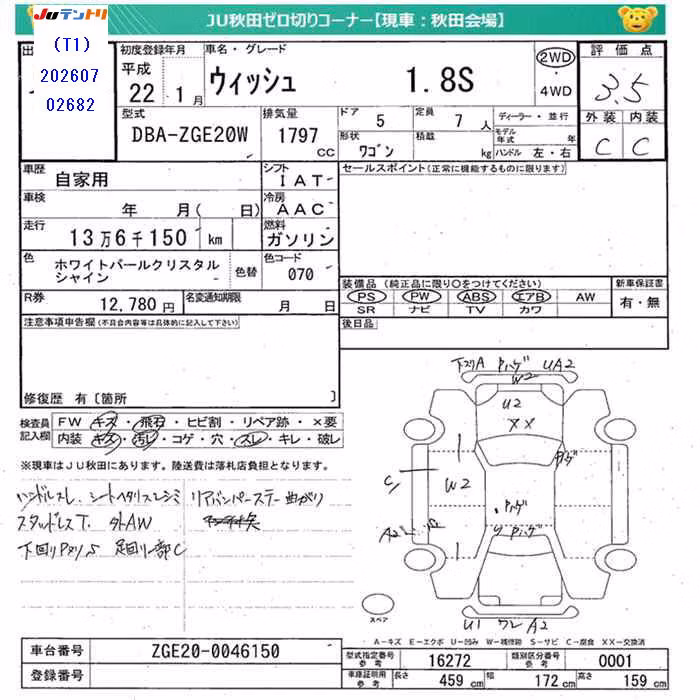 JUテントリ
JU秋田ゼロ切りコーナー【現車：秋田会場】
出
(T1)
202607
02682
初度登録年月
平成
22 1月
車名・グレード
ウィッシュ 1.8S
2WD
4WD
評価点
3.5
外装 内装
C C
型式
DBA-ZGE20W
排気量
1797 CC
ドア 5
定員 7人
形状 ワゴン
積載 kg
ディーラー・並行
モデル年式 年
ハンドル 左・右
車歴
自家用
シフト
IAT
セールスポイント（正常に機能するものに限ります）
車検
年 月( 日)
冷房
AAC
走行
13万6千150 km
燃料
ガソリン
色
ホワイトパールクリスタル
シャイン
色替
色コード
070
装備品（純正品に限り○をつけてください）
PS PW ABS エアB AW
SR ナビ TV カワ
新車保証書
有・無
R券
12,780円
名変通知期限
月 日
後日品
注意事項申告欄(不具合内容等は具体的に記入して下さい)
修復歴 有〔箇所 〕
検査員
記入欄
FW キズ・飛石・ヒビ割・リペア跡・×要
内装 キズ・汚レ・コゲ・穴・スレ・キレ・破レ
※現車はJU秋田にあります。陸送費は落札店負担となります。
ハンドルスレ、シートヘタリスレシミ リアバンパーステー曲がり
スタッドレスT. 外AW
下回りPヌリS 足回り一部C
下スリA Pハゲ UA2
W2
U2
XX
Pハゲ
W2
Pハゲ
Pハゲ
U1 ワレ A2
スペア
A-キズ E-エクボ U-凹み W-補修跡 S-サビ C-腐食 XX-交換済
車台番号 ZGE20-0046150
登録番号
型式指定番号
参考
16272
類別区分番号
参考
0001
車庫証明用
参考
長さ 459 cm 幅 172 cm 高さ 159 cm